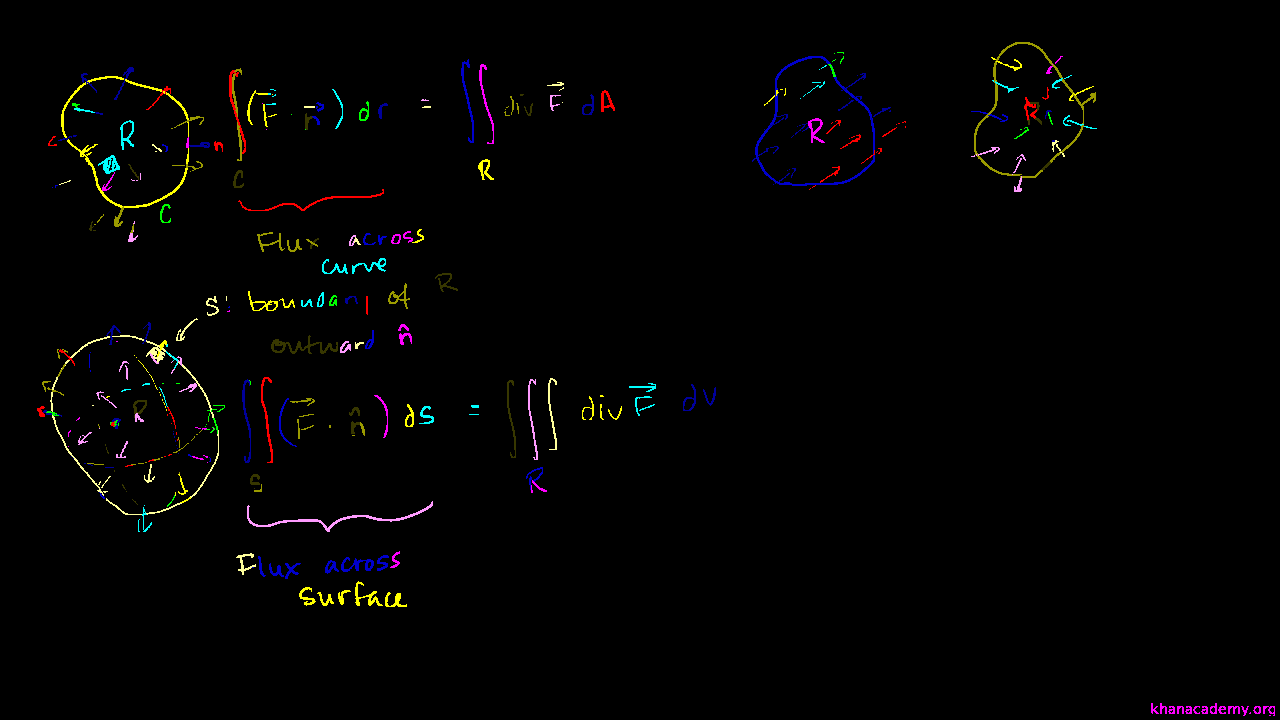 R
n
C
∫ (F⃗ · n̂) dr = ∬ div F⃗ dA
C R
Flux across
curve
S: boundary of R
outward n̂
R
∬ (F⃗ · n̂) dS = ∭ div F⃗ dV
S R
Flux across
surface
R
R
khanacademy.org